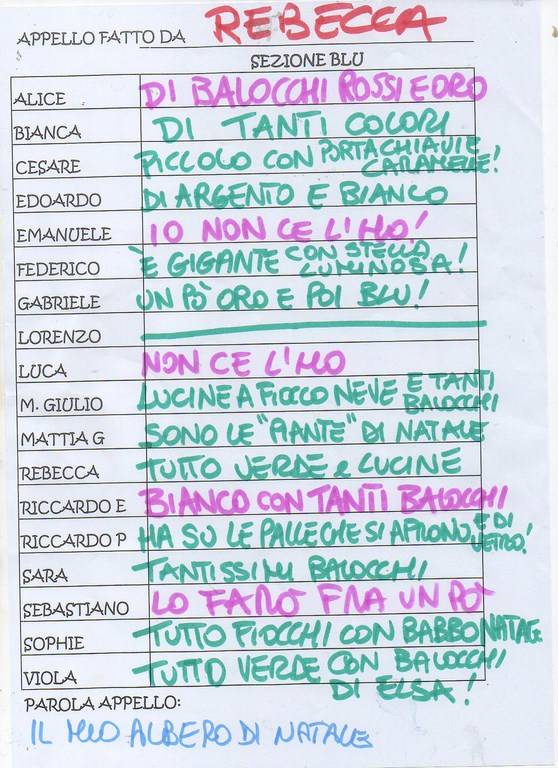 APPELLO FATTO DA REBECCA
SEZIONE BLU
ALICE DI BALOCCHI ROSSI E ORO
BIANCA DI TANTI COLORI
CESARE PICCOLO CON PORTACHIAVI E CARAMELLE!
EDOARDO DI ARGENTO E BIANCO
EMANUELE IO NON CE L'HO!
FEDERICO È GIGANTE CON STELLA LUMINOSA!
GABRIELE UN PÒ ORO E POI BLU!
LORENZO
LUCA NON CE L'HO
M. GIULIO LUCINE A FIOCCO NEVE E TANTI BALOCCHI
MATTIA G SONO LE "PIANTE" DI NATALE
REBECCA TUTTO VERDE e LUCINE
RICCARDO E BIANCO CON TANTI BALOCCHI
RICCARDO P HA SU LE PALLE CHE SI APRONO E DI VETRO!
SARA TANTISSIMI BALOCCHI
SEBASTIANO LO FARÒ FRA UN PÒ
SOPHIE TUTTO FIOCCHI CON BABBO NATALE
VIOLA TUTTO VERDE CON BALOCCHI
DI ELSA!
PAROLA APPELLO:
IL MIO ALBERO DI NATALE